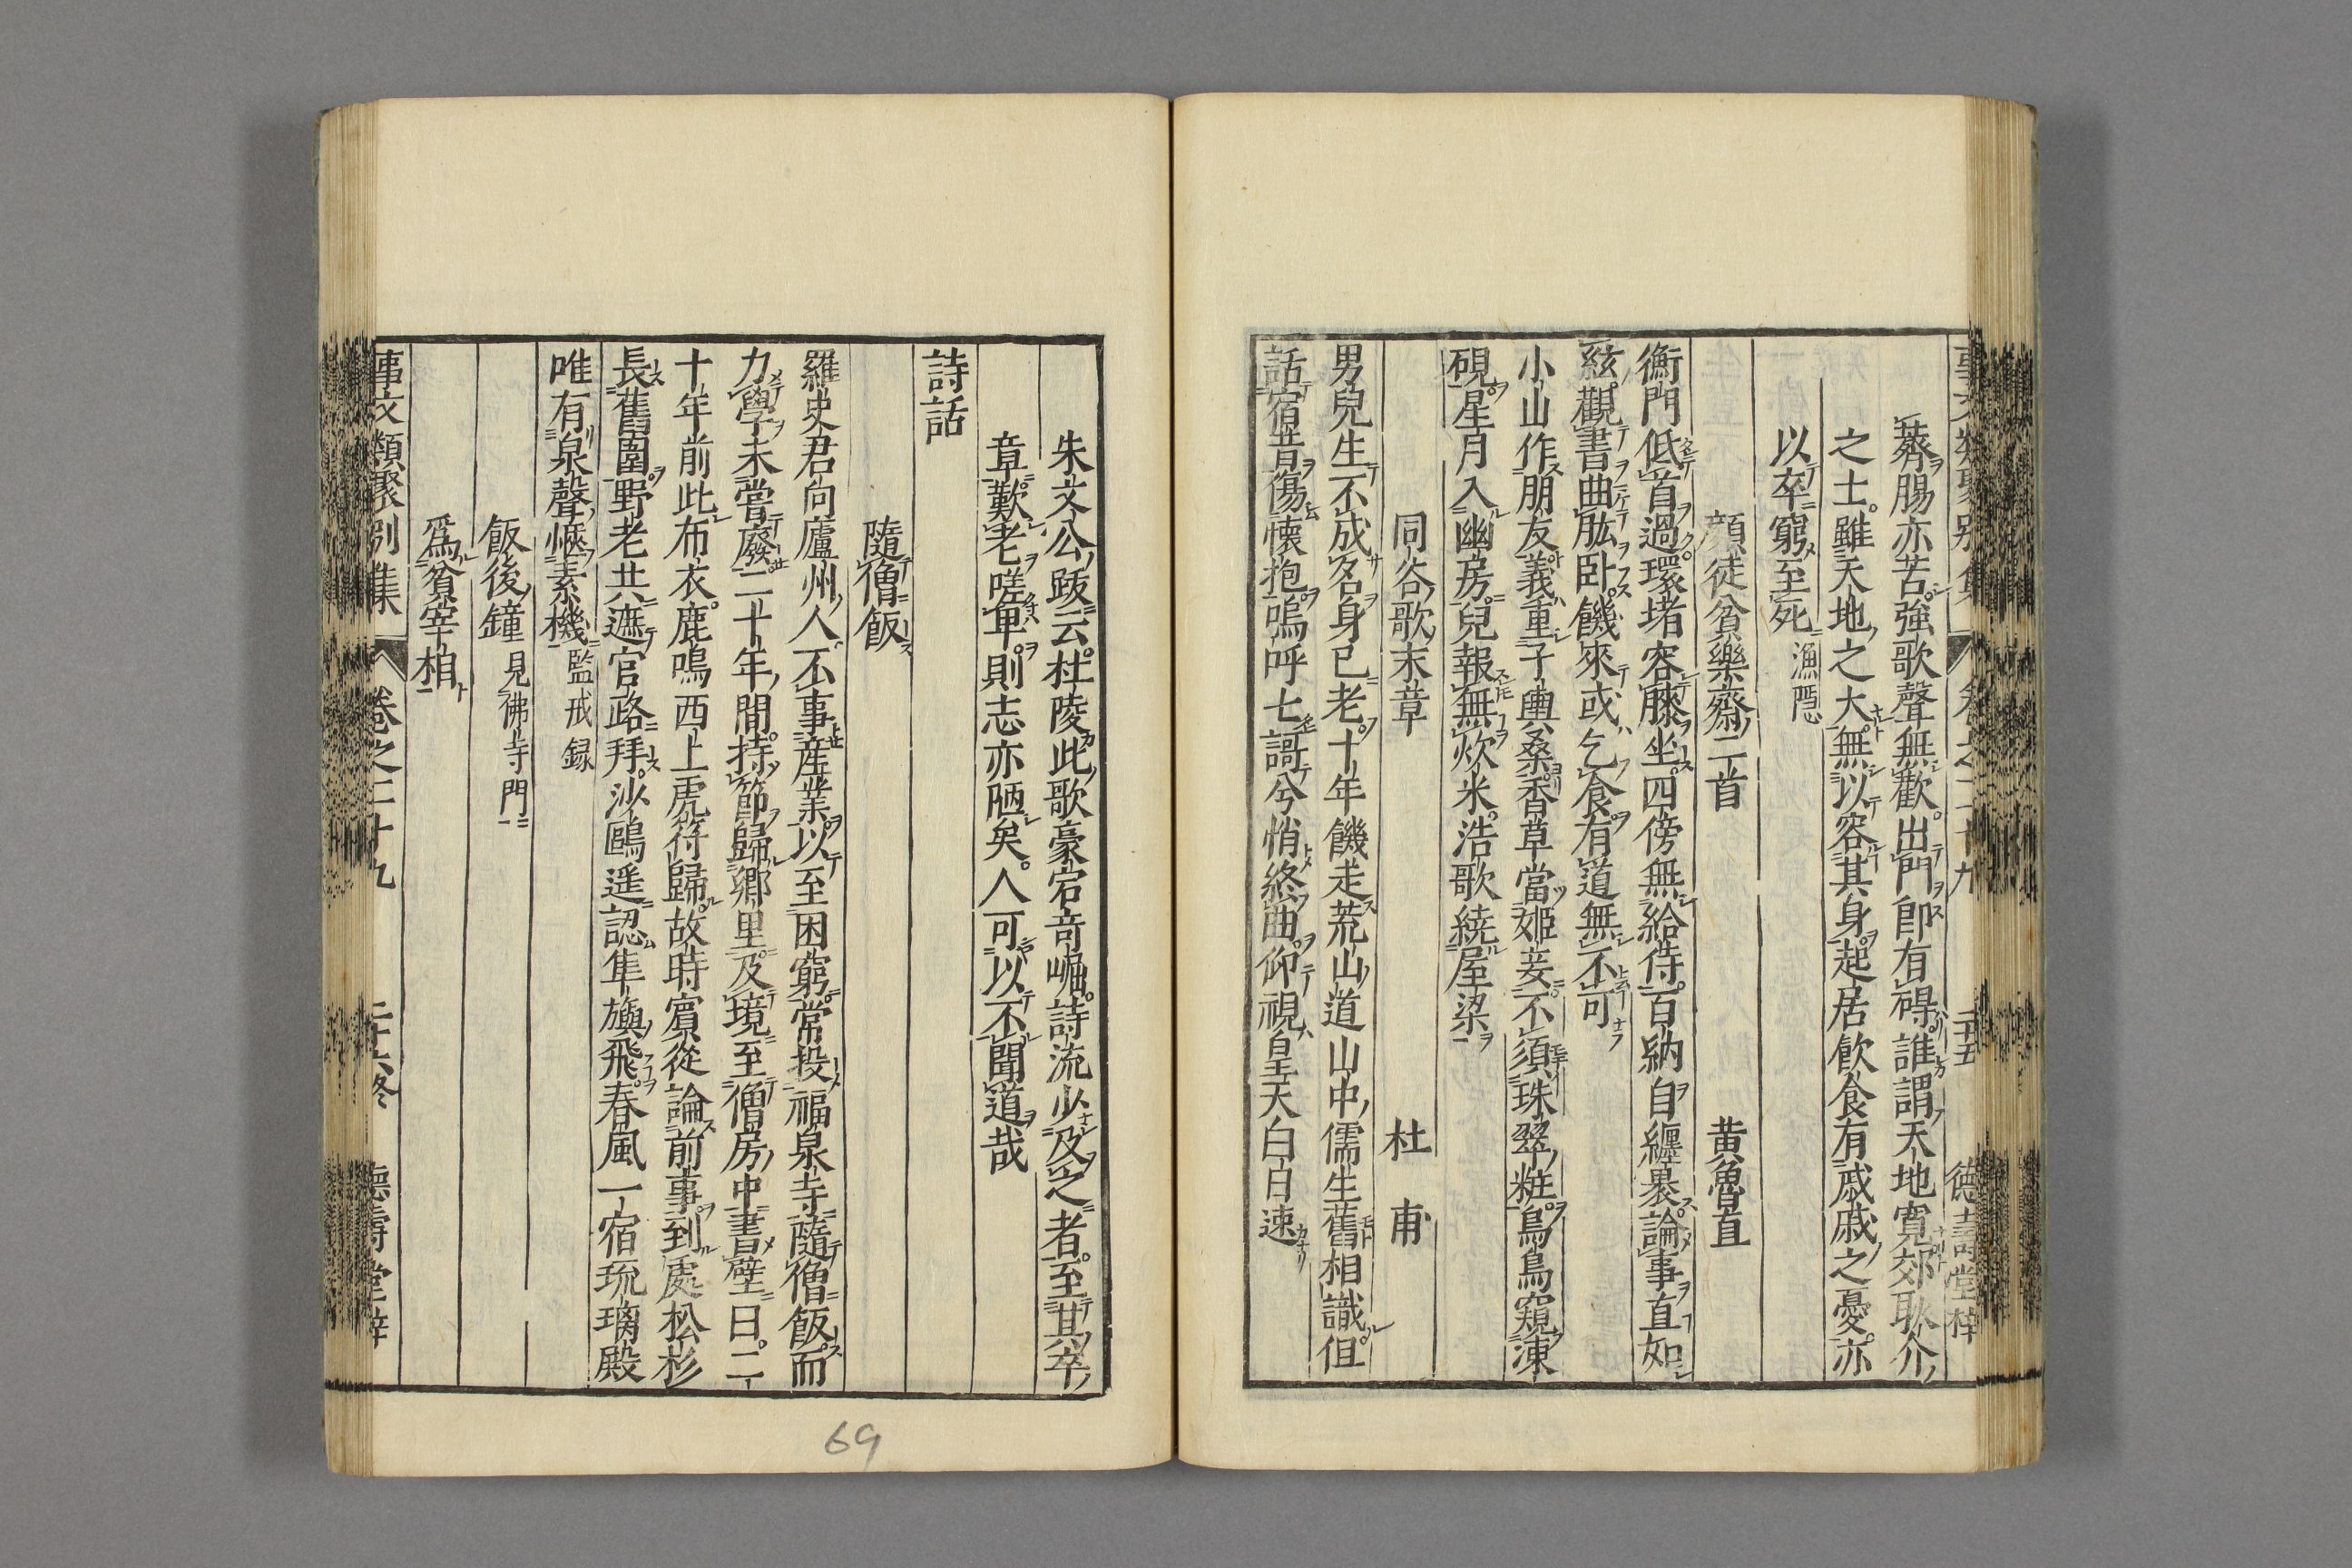 蕣腸亦苦強歌聲無歡出門即有碍誰謂天地寛郊耿介
之士雖天地之大無以容其身起居飲食有戚戚之憂亦
以卒窮至死漁隱
顔徒貧樂齋二首 黄魯直
衡門低首過環堵容膝坐四傍無給侍百納自纏裹論事直如
絃觀書曲肱卧饑來或乞食有道無不可
小山作朋友義重子輿桑香草當姫妾不須珠翠粧烏鳥窺凍
硯星月入幽房兒報無炊米浩歌繞屋梁
同谷歌末章 杜甫
男兒生不成名身已老十年饑走荒山道山中儒生舊相識但
話宿昔傷懐抱嗚呼七謌兮悄終曲仰視皇天白日速
朱文公跋云杜陵此歌豪宕奇崛詩流少及之者至其卒
章歎老嗟卑則志亦陋矣人可以不聞道哉
詩話
隨僧飯
羅史君向廬州人不事産業以至困窮常投福泉寺隨僧飯而
力學未嘗廢二十年間持節歸郷里及境至僧房中書壁曰二
十年前此布衣鹿鳴西上虎符歸故時賓從論前事到處松杉
長舊圍野老共遮官路拜沙鷗遥認隼旟飛春風一宿琉璃殿
唯有泉聲愜素機監戒録
飯後鐘見佛寺門
爲貧宰相
事文類聚別集 卷之二十九 二十六終 德壽堂梓